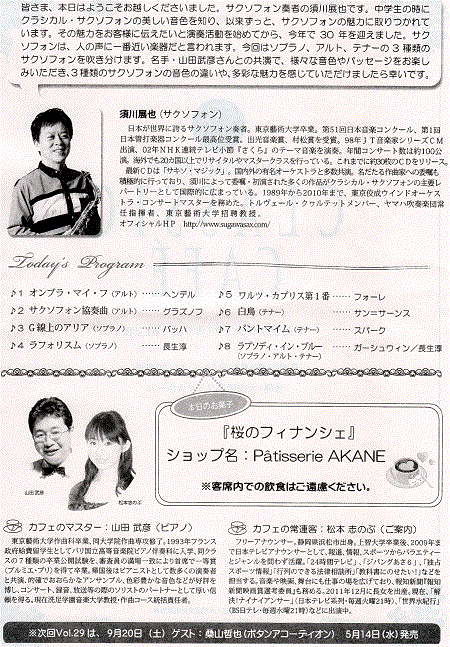 皆さま、本日はようこそお越しくださいました。サクソフォン奏者の須川展也です。中学生の時に
クラシカル・サクソフォンの美しい音色を知り、以来ずっと、サクソフォンの魅力に取りつかれて
います。その魅力をお客様に伝えたいと演奏活動を始めてから、今年で 30 年を迎えました。サク
ソフォンは、人の声に一番近い楽器だと言われます。今回はソプラノ、アルト、テナーの 3 種類の
サクソフォンを吹き分けます。名手・山田武彦さんとの共演で、様々な音色やパッセージをお楽し
みいただき、3種類のサクソフォンの音色の違いや、多彩な魅力を感じていただけましたら幸いです。
須川展也（サクソフォン）
日本が世界に誇るサクソフォン奏者。東京藝術大学卒業。第51回日本音楽コンクール、第1回
日本管打楽器コンクール最高位受賞。出光音楽賞、村松賞を受賞。98年JT音楽家シリーズCM
出演、02年NHK連続テレビ小説『さくら』のテーマ音楽を演奏。年間コンサート数は約100公
演。海外でも20カ国以上でリサイタルやマスタークラスを行っている。これまでに約30枚のCDをリリース。
最新CDは「サキソ・マジック」。国内外の有名オーケストラと多数共演。名だたる作曲家への委嘱も
積極的に行っており、須川によって委嘱・初演された多くの作品がクラシカル・サクソフォンの主要レ
パートリーとして国際的に広まっている。1989年から2010年まで、東京佼成ウインドオーケス
トラ・コンサートマスターを務めた。トルヴェール・クヮルテットメンバー、ヤマハ吹奏楽団常
任指揮者、東京藝術大学招聘教授。
オフィシャルHP http://www.sugawasax.com/
Today's Program
♪1 オンブラ・マイ・フ（アルト）…… ヘンデル
♪2 サクソフォン協奏曲（アルト）…… グラズノフ
♪3 G線上のアリア（ソプラノ）…… バッハ
♪4 ラフォリスム（ソプラノ）…… 長生淳
♪5 ワルツ・カプリス第1番 …… フォーレ
♪6 白鳥（テナー）…… サン=サーンス
♪7 パントマイム（テナー）…… スパーク
♪8 ラプソディ・イン・ブルー …… ガーシュウィン／長生淳
（ソプラノ・アルト・テナー）
本日のお菓子
『桜のフィナンシェ』
ショップ名：Pâtisserie AKANE
※客席内での飲食はご遠慮ください。
山田武彦
松本志のぶ
カフェのマスター：山田 武彦（ピアノ）
東京藝術大学作曲科卒業、同大学院作曲専攻修了。1993年フランス
政府給費留学生としてパリ国立高等音楽院ピアノ伴奏科に入学、同クラ
スの7種類の卒業公開試験を、審査員の満場一致により首席で一等賞
（プルミエ・プリ）を得て卒業。帰国後はピアニストとして数多くの演奏者
と共演、的確でおおらかなアンサンブル、色彩豊かな音色などが好評を
博し、コンサート、録音、放送等の際のソリストのパートナーとして厚い信
頼を得る。現在洗足学園音楽大学教授・作曲コース統括責任者。
カフェの常連客：松本 志のぶ（ご案内）
フリーアナウンサー。静岡県浜松市出身。上智大学卒業後、2009年ま
で日本テレビアナウンサーとして、報道、情報、スポーツからバラエティー
とジャンルを問わず活躍。「24時間テレビ」、「ジパングあさ6」、「独占
スポーツ情報」「行列のできる法律相談所」「教科書にのせたい！」などを
担当する。音楽や映画、舞台にも仕事の場を広げており、報知新聞「報知
新聞映画賞選考委員」も務める。2011年12月に長女を出産。現在、「解
決！ナイナイアンサー」（日本テレビ系列・毎週火曜21時）、「世界水紀行」
（BS日テレ・毎週水曜21時）などに出演中。
※次回Vol.29 は、9月20日（土）ゲスト：桑山哲也（ボタンアコーディオン） 5月14日（水）発売